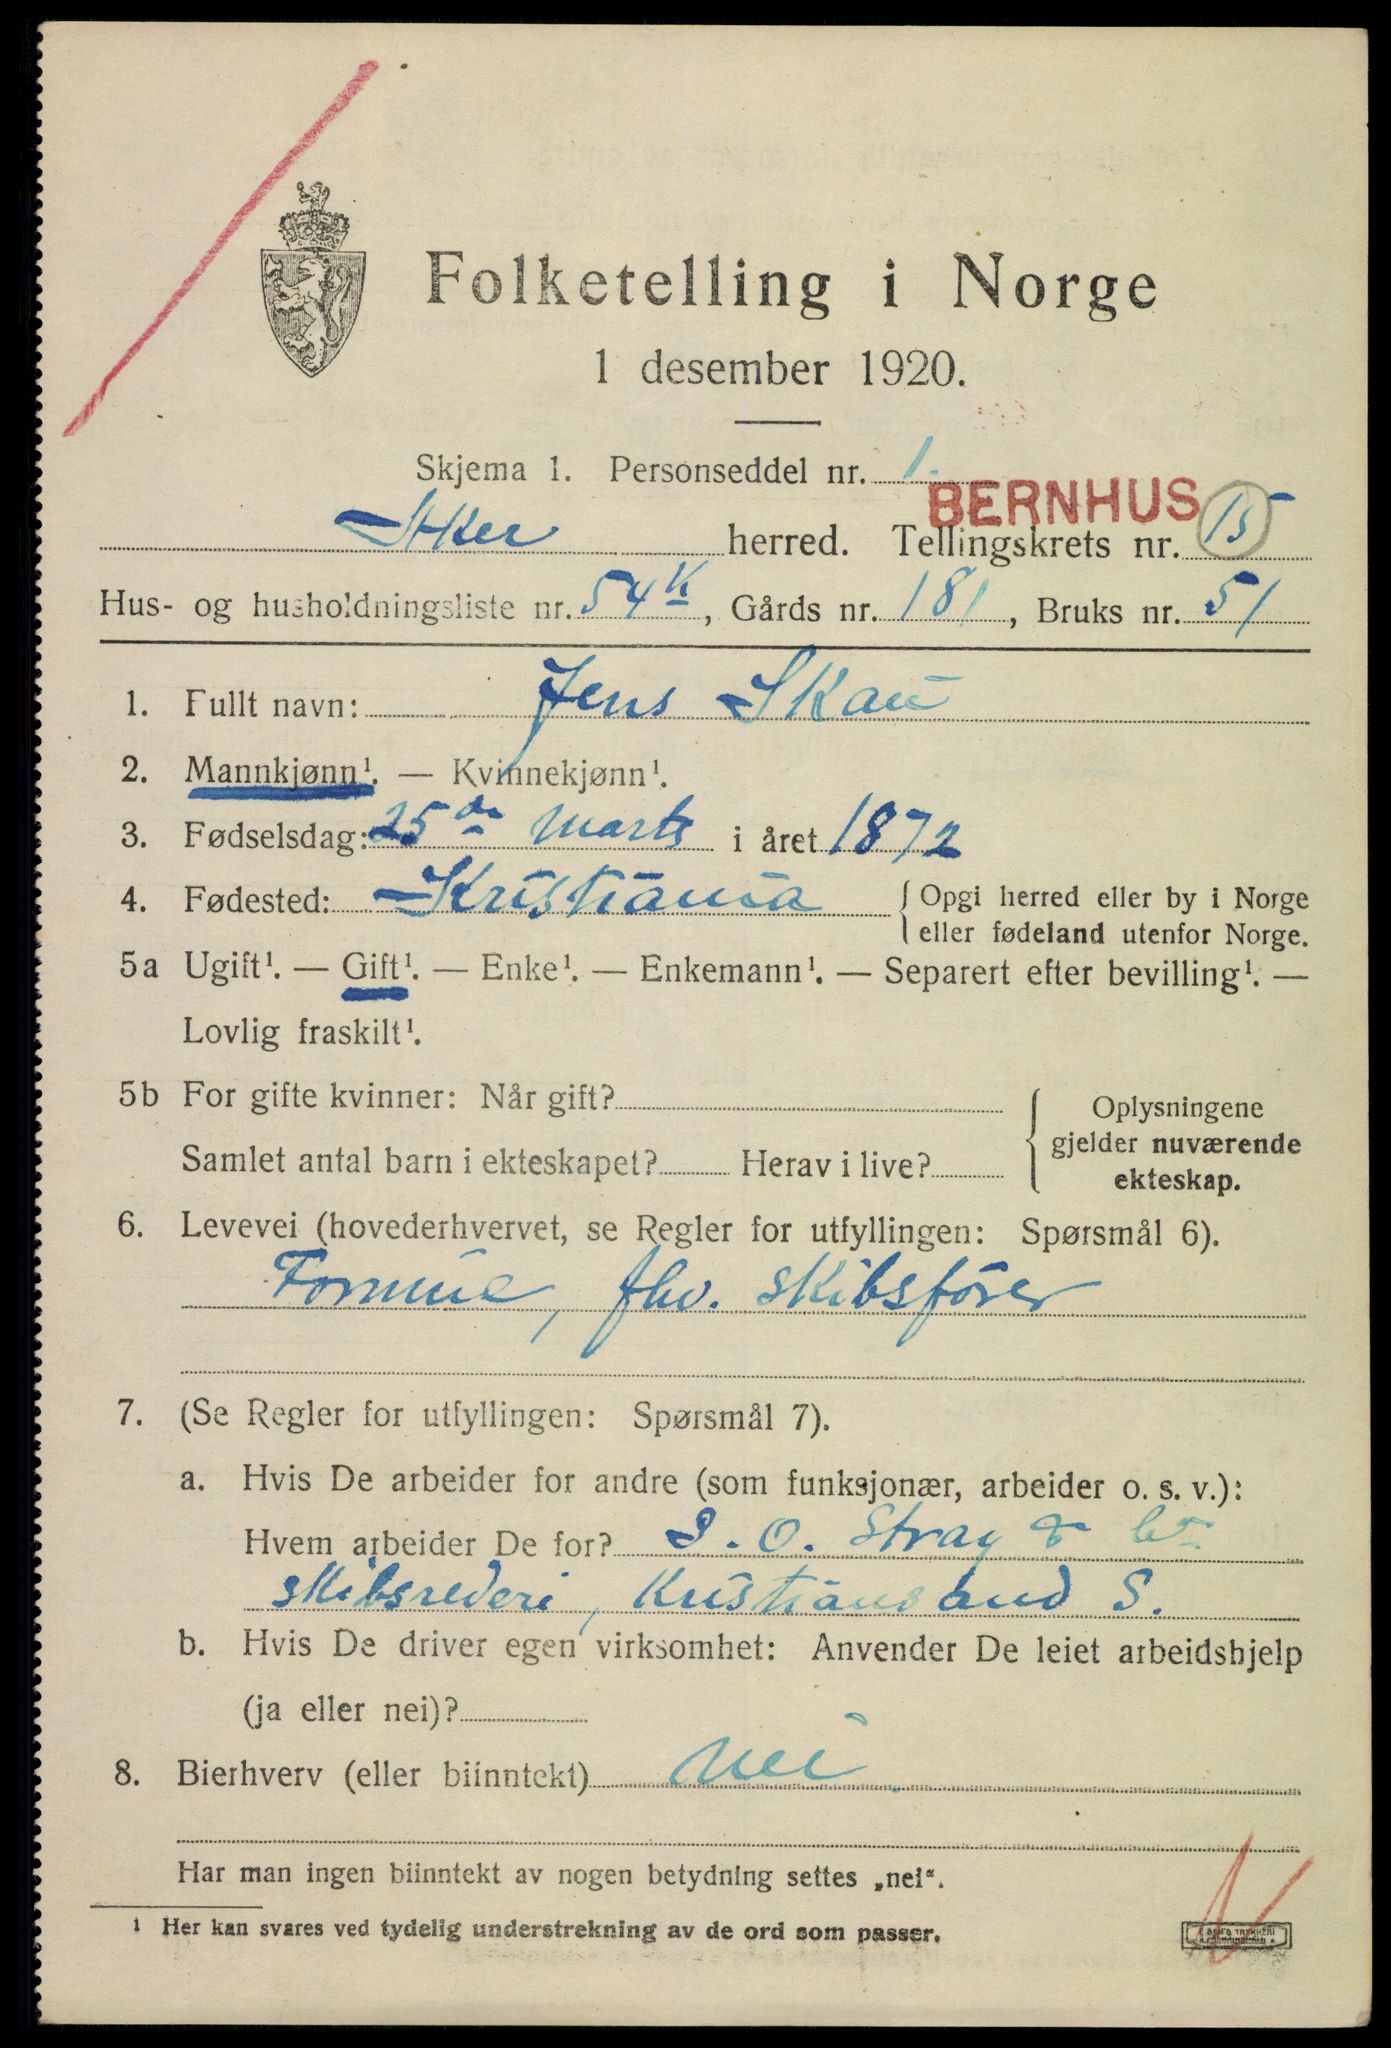 Folketelling i Norge
1 desember 1920.
Skjema 1. Personseddel nr. 1.
BERNHUS
Aker herred. Tellingskrets nr. 15
Hus- og husholdningsliste nr. 54 K, Gårds nr. 181, Bruks nr. 51
1. Fullt navn: Jens Skau
2. Mannkjønn¹. — Kvinnekjønn¹.
3. Fødselsdag: 25 de Marts i året 1872
4. Fødested: Kristiania { Opgi herred eller by i Norge
eller fødeland utenfor Norge.
5a Ugift¹. — Gift¹. — Enke¹. — Enkemann¹. — Separert efter bevilling¹. —
Lovlig fraskilt¹.
5b For gifte kvinner: Når gift? { Oplysningene
gjelder nuværende
Samlet antal barn i ekteskapet? Herav i live?
ekteskap.
6. Levevei (hovederhvervet, se Regler for utfyllingen: Spørsmål 6).
Formue, fhv. skibsfører
7. (Se Regler for utfyllingen: Spørsmål 7).
a. Hvis De arbeider for andre (som funksjonær, arbeider o. s. v.):
Hvem arbeider De for? S. O. Stray & Co
skibsrederi, Kristiansand S.
b. Hvis De driver egen virksomhet: Anvender De leiet arbeidshjelp
(ja eller nei)?
8. Bierhverv (eller biinntekt) nei.
Har man ingen biinntekt av nogen betydning settes „nei“.
¹ Her kan svares ved tydelig understrekning av de ord som passer.